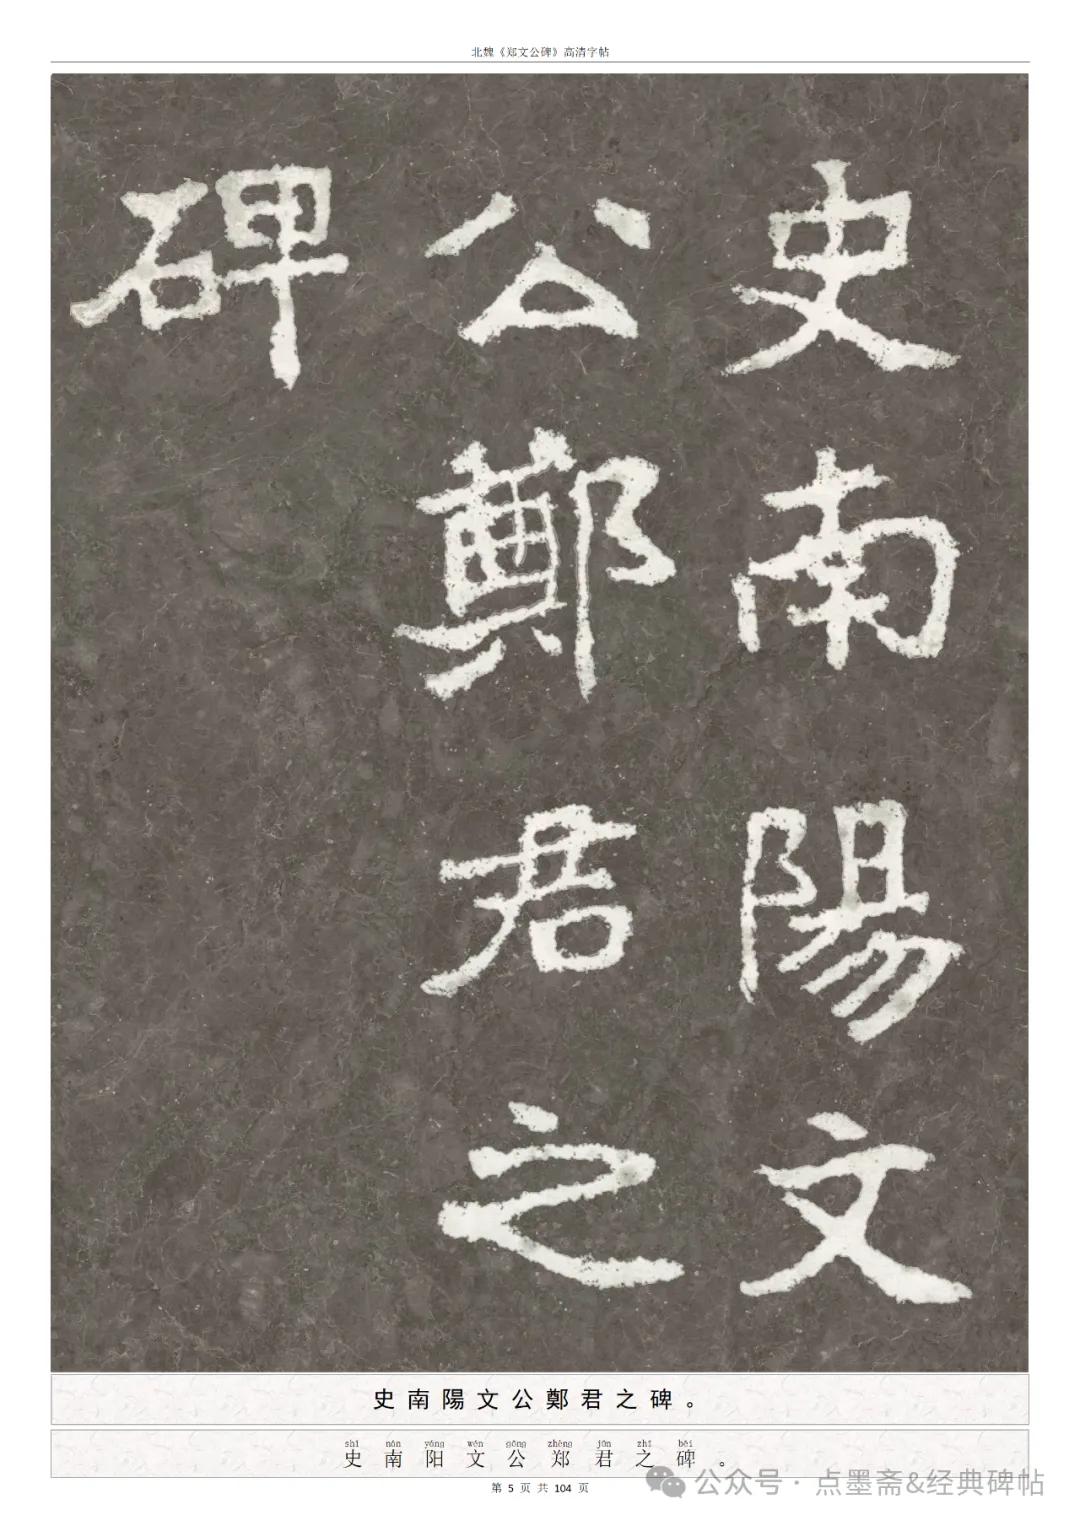 北魏《郑文公碑》高清字帖
史南陽文
公鄭君之
碑
史南陽文公鄭君之碑。
shǐ nán yáng wén gōng zhèng jūn zhī bēi
史南阳文公郑君之碑。
第 5 页 共 104 页
公众号 · 点墨斋&经典碑帖